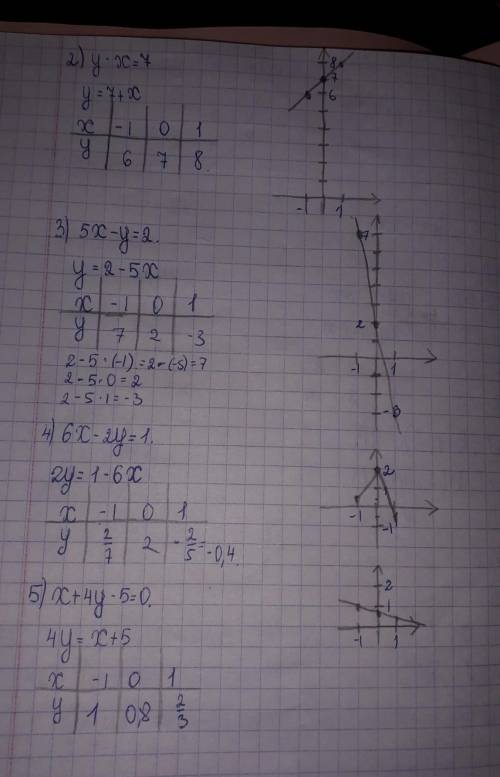 2) y - x = 7
y = 7 + x
x -1 0 1
y 6 7 8
8
7
6
-1 1
3) 5x - y = 2.
y = 2 - 5x
x -1 0 1
y 7 2 -3
2 - 5 · (-1) = 2 - (-5) = 7
2 - 5 · 0 = 2
2 - 5 · 1 = -3
7
2
-1 1
-3
4) 6x - 2y = 1.
2y = 1 - 6x
x -1 0 1
y 2/7 2 -2/5 = -0,4
2
-1
-1
5) x + 4y - 5 = 0.
4y = x + 5
x -1 0 1
y 1 0,8 2/3
2
1
-1 1